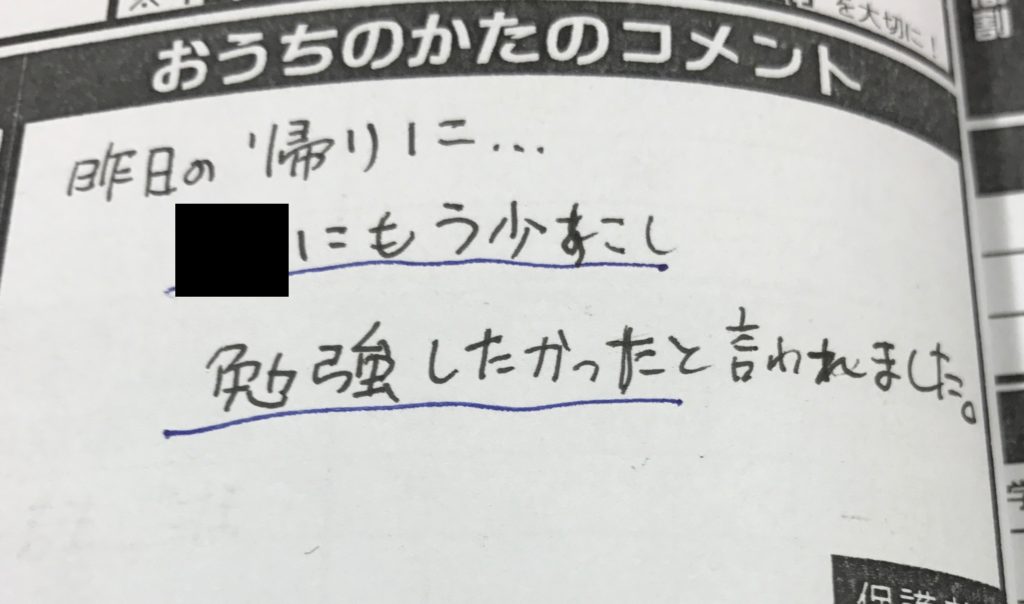 を大切に！
おうちのかたのコメント
昨日の帰りに…
にもう少すこし
勉強したかったと言われました。
保護